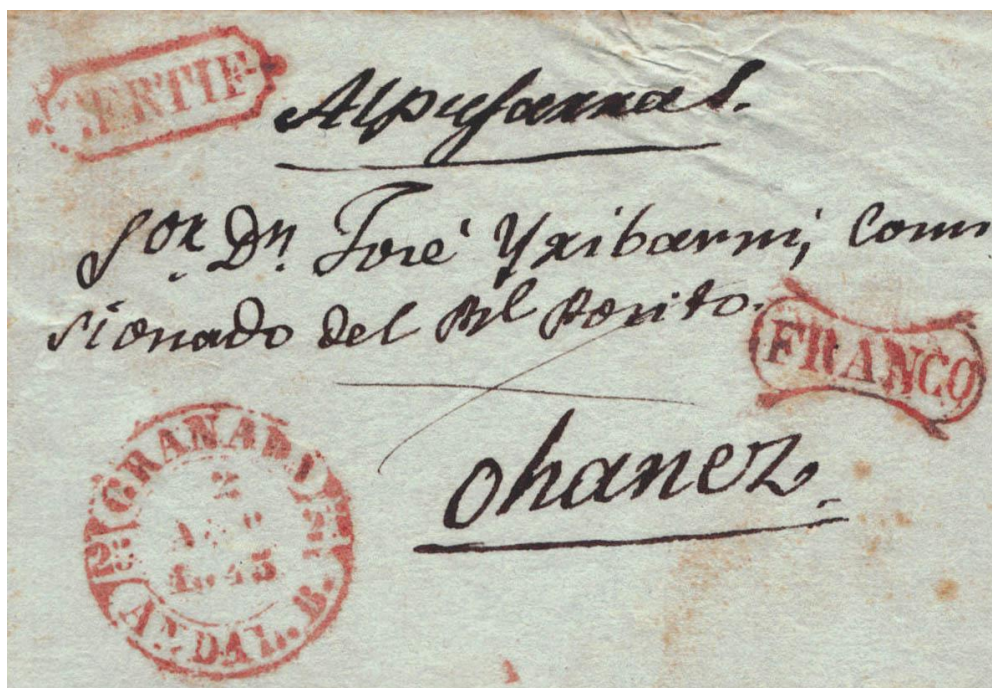 CERTIF
Alpujarras.
Sor. Dn. José Yribarni, Comi
sionado del Rl Posito.
FRANCO
Ohanez.
GRANADA
2
1845
25 25
ANDAL. B.